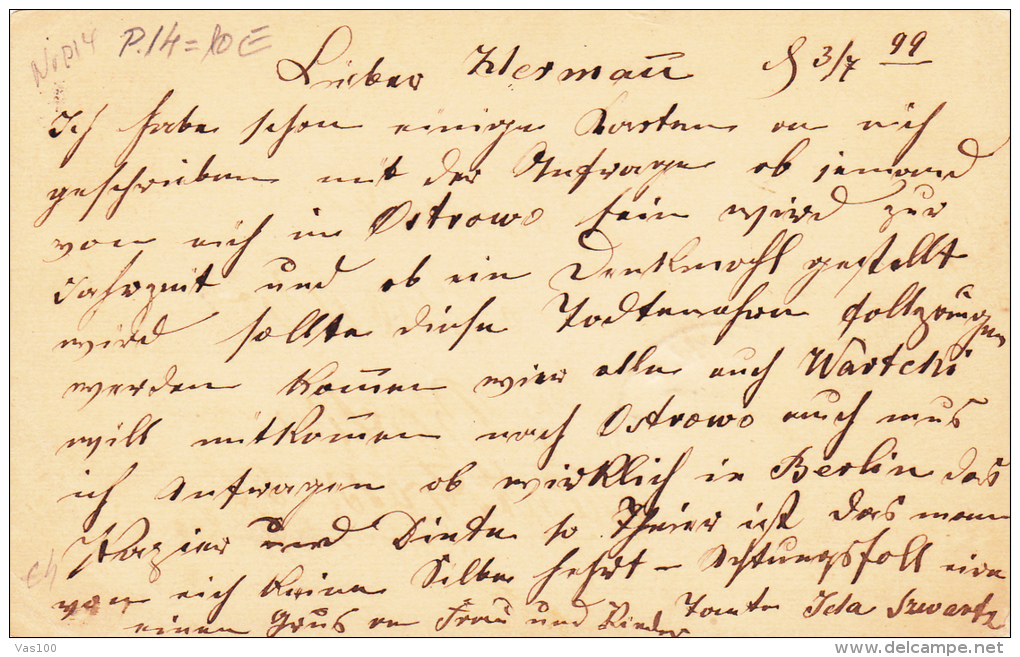 No P14 P.14=10E
Lieber Herman d 3/7 99
Ich habe schon einige Karten an eich
geschrieben mit der Anfrage ob jemand
von eich in Ostrowo sein wird zur
Jahrzeit und ob ein Denkmahl gestellt
wird sollte diese Todtenahrn
werden kommen wier alle auch Wartski
will mitkommen nach Ostrowo auch mus
ich Anfragen ob wirklich in Berlin das
Papier und Dinte so Theier ist das man
von eich keine Silbe hehrt – Achtungsfoll eire
einen Grus an Frau und Kinder Tante Ida Szwartz
Vas100
www.delcampe.net